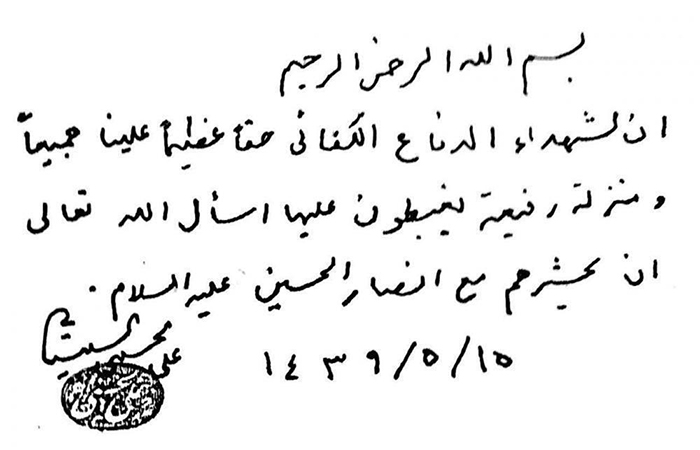 بسم الله الرحمن الرحيم
ان لشهداء الدفاع الكفائي حقاً عظيماً علينا جميعاً
ومنزلة رفيعة يغبطون عليها اسأل الله تعالى
ان يحشرهم مع انصار الحسين عليه السلام .
علي الحسيني السيستاني
١٤٣٩/٥/١٥